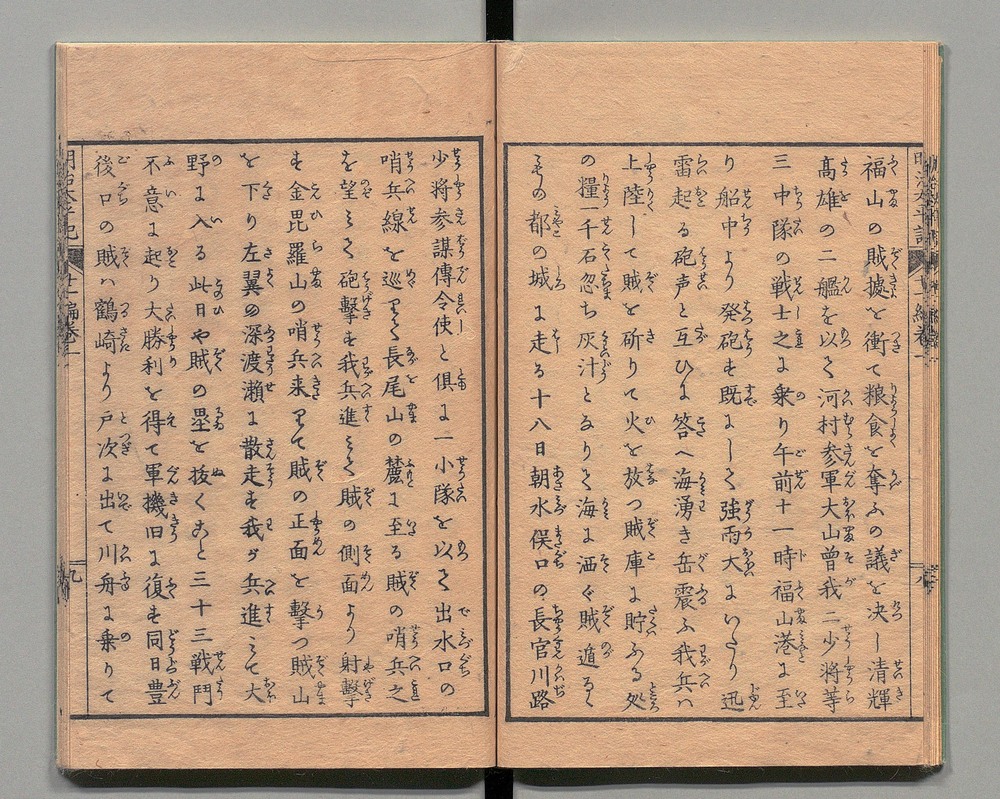 福山の賊據を衝て粮食を奪ふの議を決し清輝
髙雄の二艦を以て河村参軍大山曾我二少将等
三中隊の戦士之に乗り午前十一時福山港に至
り船中より発砲す既にして強雨大にいたり迅
雷起る砲声と互ひに答へ海湧き岳震ふ我兵ハ
上陸して賊を斫りて火を放つ賊庫に貯ふる処
の糧一千石忽ち灰汁となりて海に洒ぐ賊遁るゝ
もの都の城に走る十八日朝水俣口の長官川路
少将参謀傳令使と倶に一小隊を以て出水口の
哨兵線を巡りて長尾山の麓に至る賊の哨兵之
を望みて砲撃す我兵進みて賊の側面より射撃
す金毘羅山の哨兵来りて賊の正面を撃つ賊山
を下り左翼の深渡瀬に散走す我が兵進みて大
野に入る此日や賊の塁を抜くこと三十三戦鬥
不意に起り大勝利を得て軍機旧に復す同日豊
後口の賊ハ鶴崎より戸次に出て川舟に乗りて
明治太平記
十一編巻一
九